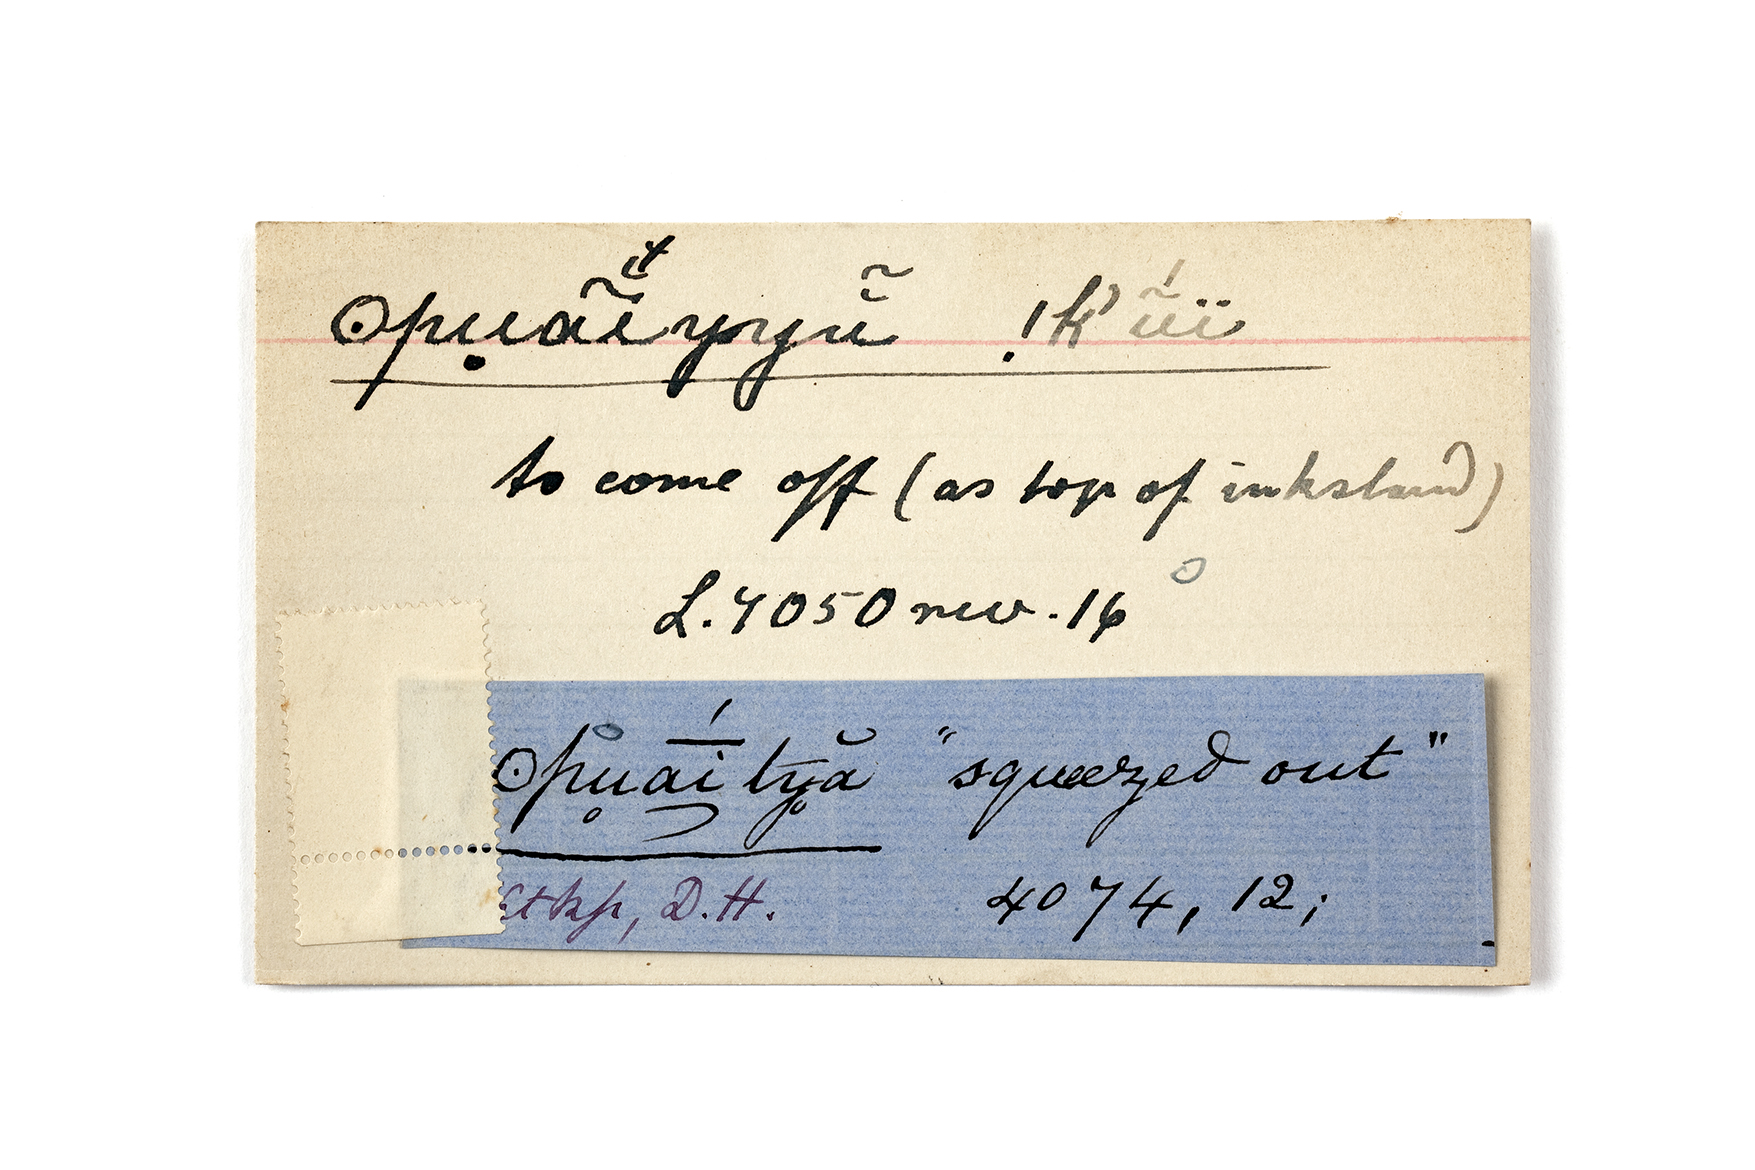 ʘpu̥ai̯yyŭ̯ !k'ũï
to come off (as top of inkstand)
L. 4050 rev. 16
ʘpuaítyă̯ "squeezed out"
D.H. 4074, 12;